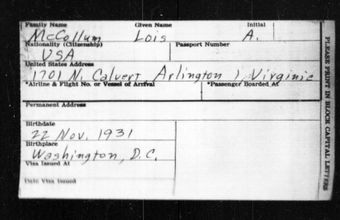 Family Name Given Name Initial
McCollum Lois A.
Nationality (Citizenship) Passport Number
USA
United States Address
1701 N. Calvert, Arlington, Virginia
*Airline & Flight No. or Vessel of Arrival *Passenger Boarded At
Permanent Address
Birthdate
22 Nov. 1931
Birthplace
Washington, D.C.
Visa Issued At
Date Visa Issued
PLEASE PRINT IN BLOCK CAPITAL LETTERS